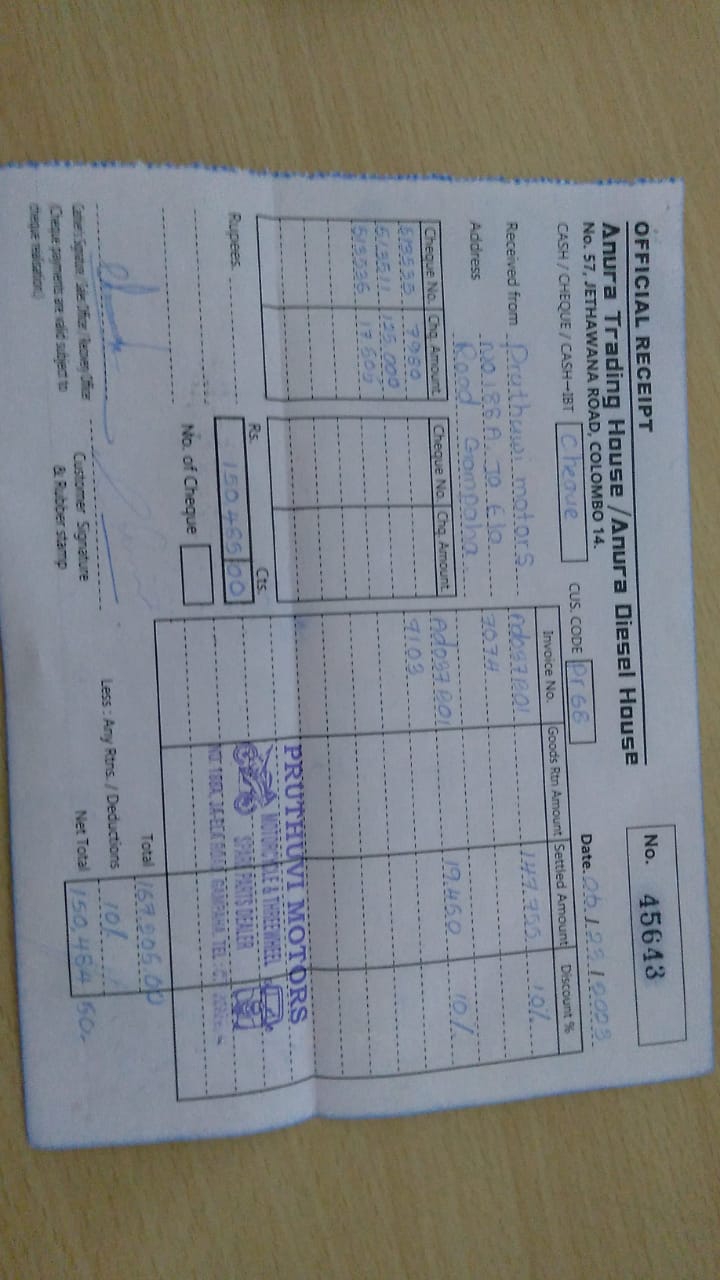 OFFICIAL RECEIPT
No. 45643
Anura Trading House / Anura Diesel House
No. 57, JETHAWANA ROAD, COLOMBO 14.
CASH / CHEQUE / CASH–IBT Cheque CUS. CODE Pr 68 Date.
Received from Pruthuwi motors
Address No. 186 A, Ja Ela
Road Gampaha
Cheque No. Chq. Amount Cheque No. Chq. Amount
7980
513511 125,000
17,505
Invoice No. Goods Rtn Amount Settled Amount Discount %
147,755 10%
19,450 10%
9103
PRUTHUVI MOTORS
MOTORCYCLE & THREEWHEEL
SPARE PARTS DEALER
NO. 186A, JA-ELA ROAD, GAMPAHA. TEL:
Rupees.
Rs. Cts.
150,485 00
No. of Cheque
Total 167,205.00
Less : Any Rtns. / Deductions 10%
Net Total 150,484.50
Customer Signature
& Rubber stamp
(Cheque payments are valid subject to
cheque realization)